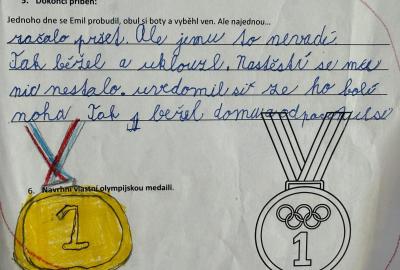 5. Dokonči příběh:
Jednoho dne se Emil probudil, obul si boty a vyběhl ven. Ale najednou...
začalo pršet. Ale jemu to nevadí.
Tak běžel a uklouzl. Naštěstí se mu
nic nestalo. uvědomil si že ho bolí
noha Tak běžel domu a odpočinul si
6. Navrhni vlastní olympijskou medaili.
1
1